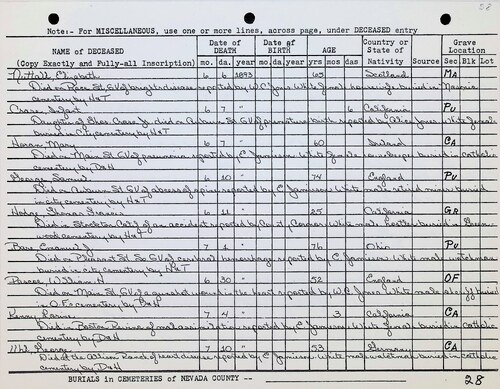 28
Note:- For MISCELLANEOUS, use one or more lines, across page, under DECEASED entry
NAME of DECEASED
(Copy Exactly and Fully-all Inscription)
Date of DEATH
mo. da. year
Date of BIRTH
mo. da. year
AGE
yrs mos das
Country or State of Nativity
Source
Grave Location
Sec. Blk Lot
Nuttall Elizabeth 6 6 1893 65 Scotland MA
Died on Race St. GV of brights disease reported by W C Jones White female housewife buried in Masonic
cemetery by H&T
Crase Infant 6 7 6 California PU
Daughter of Chas Crase Jr died on Auburn St GV of premature birth reported by White female
buried in City cemetery by H&T
Horan Mary 6 7 60 Ireland CA
Died on Main St. GV of pneumonia reported by C Jamieson White female buried in catholic
cemetery by D&H
George Samuel 6 10 74 England PU
Died on Auburn St. GV of abscess of spine reported by C Jamieson White male retired miner buried
in city cemetery by H&T
Hodge Thomas Francis 6 11 25 California GR
Died in Stockton Calif of an accident reported by White male buried in Green
wood cemetery by H&T
Barr Emanuel J 7 1 76 Ohio PU
Died on Pleasant St. So GV of cerebral hemorrhage reported by C Jamieson White male watchman
buried in city cemetery by H&T
Pascoe William H 6 30 52 England OF
Died on Main St. GV of a gunshot wound in the heart reported by W C Jones White male buried
in O.F. cemetery by D&H
Kenny 7 4 3 CA
Died in Boston Ravine of reported by C Jamieson White female buried in catholic
cemetery by D&H
George 7 10 53 Germany CA
Died at the Allison Ranch of heart disease reported by C Jamieson White male buried in catholic
cemetery by D&H
BURIALS in CEMETERIES of NEVADA COUNTY -- 28